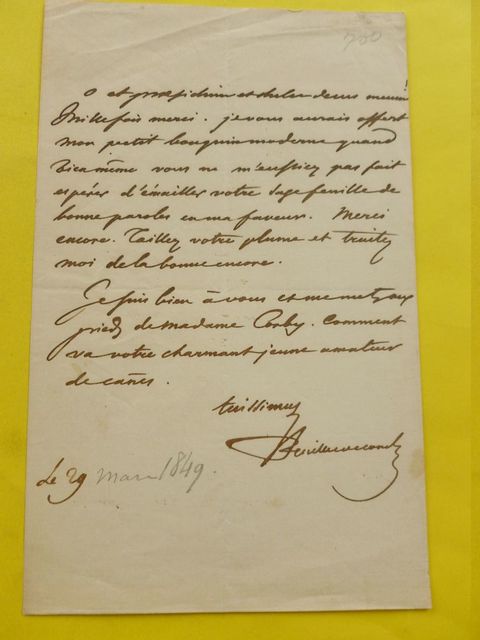 700
O et præsidium et dulce decus meum!
Mille fois merci. je vous aurais offert
mon petit bouquin moderne quand
bien même vous ne m'eussiez pas fait
espérer d'émailler votre sage feuille de
bonne paroles en ma faveur. Merci
encore. Taillez votre plume et traitez
moi de la bonne encre.
Je suis bien à vous et me mets aux
pieds de madame. Comment
va votre charmant jeune amateur
de cannes.
tuissimus
Le 29 mars 1849.